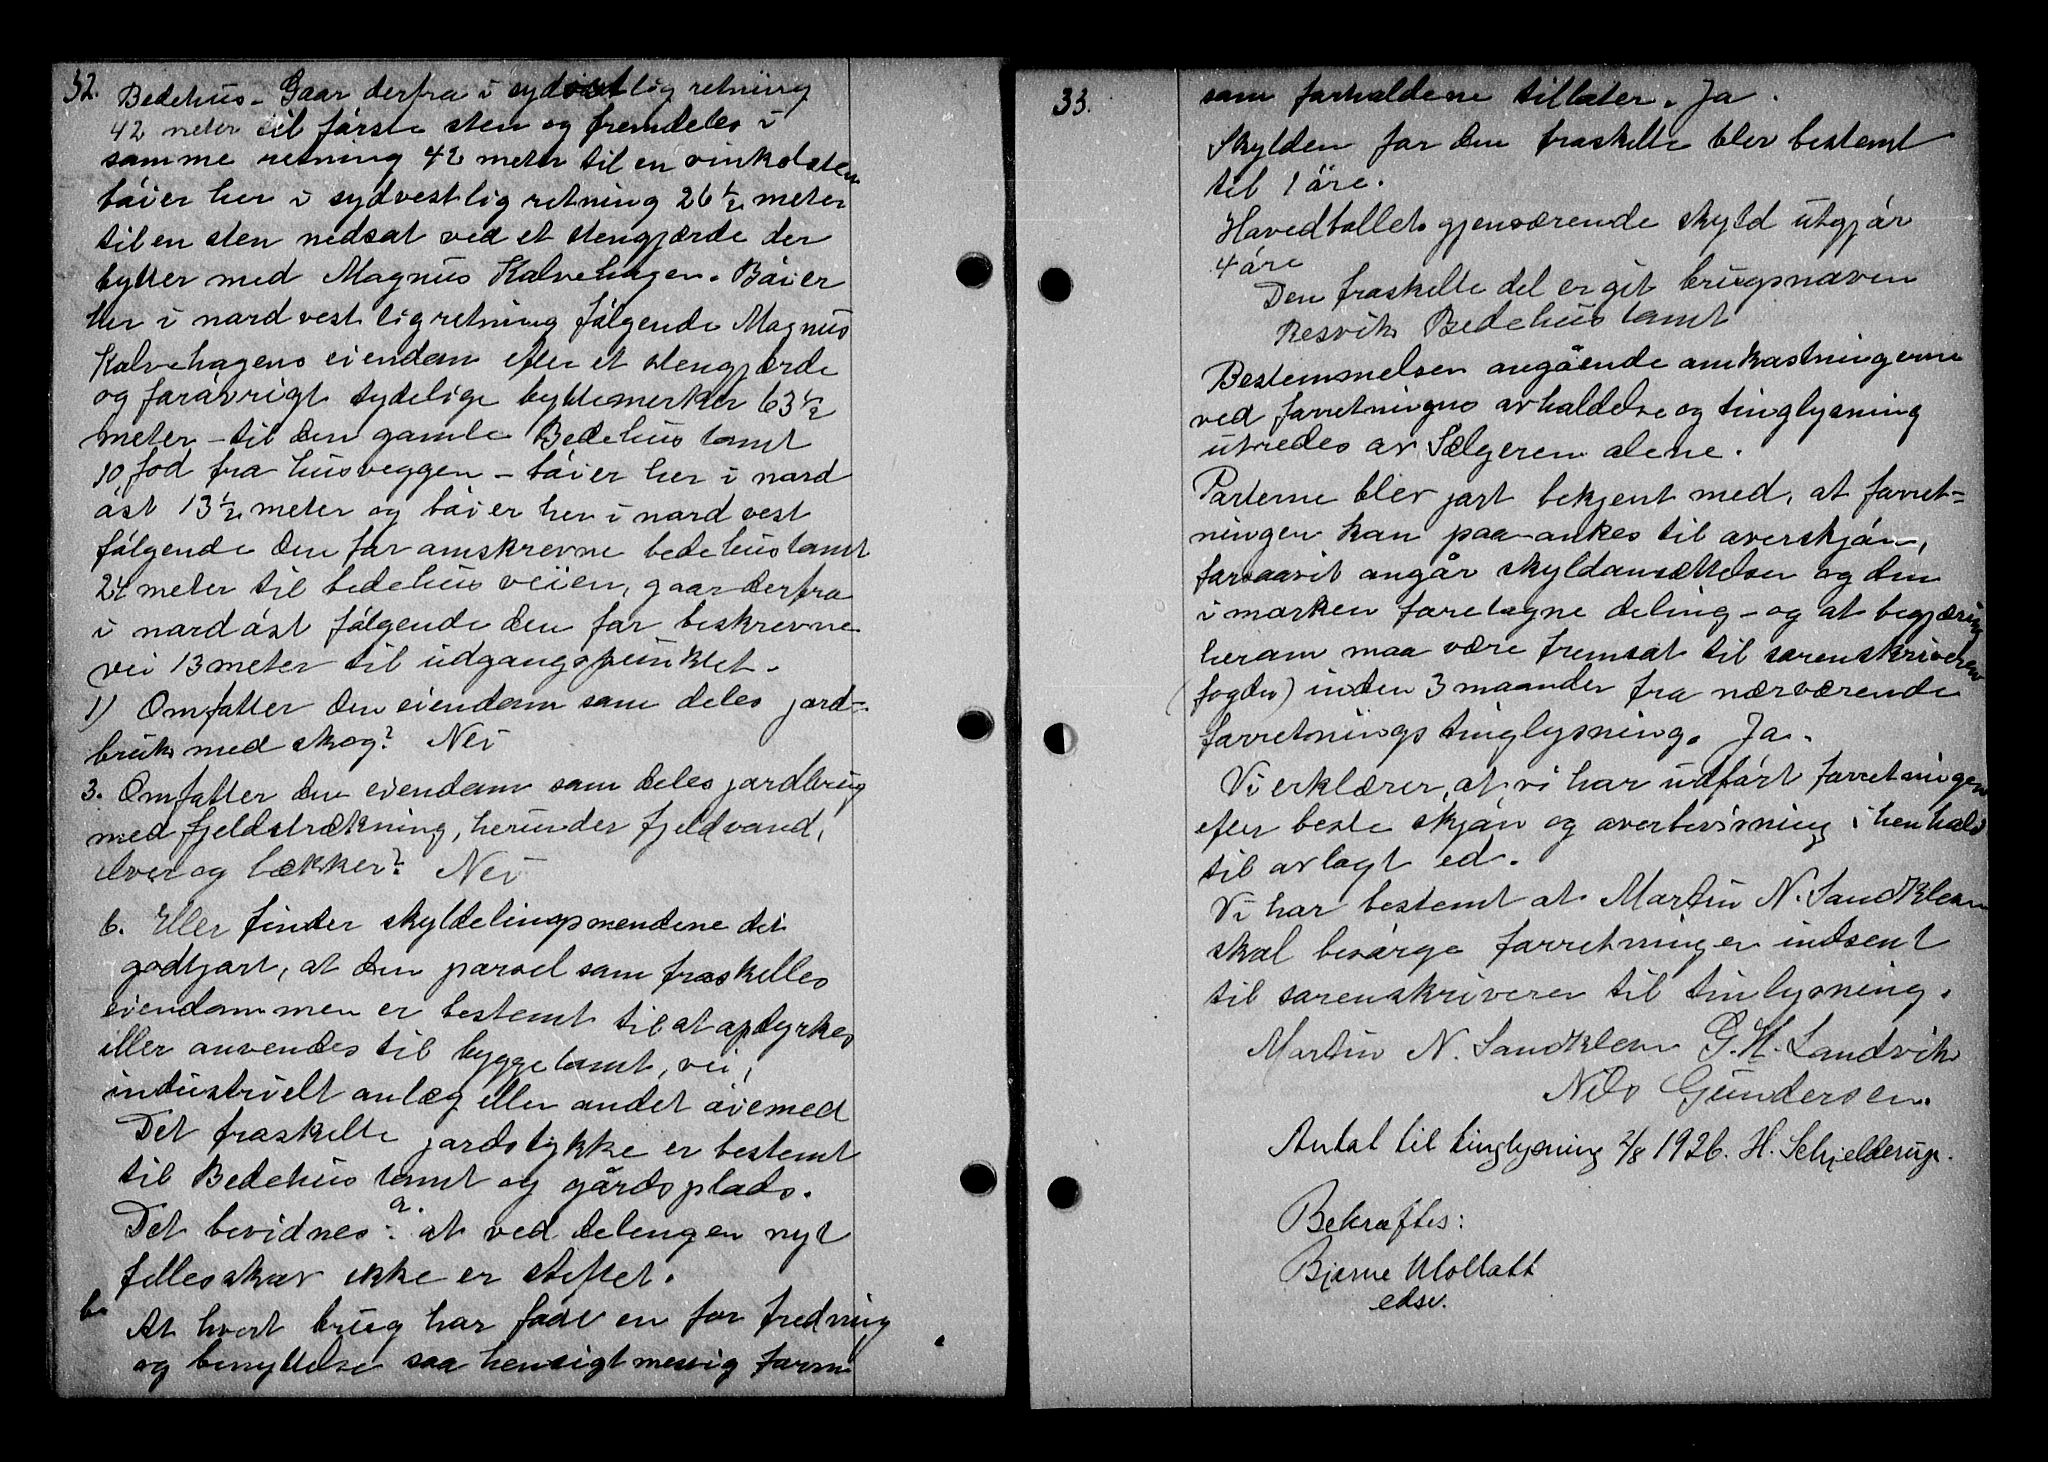 32.
Bedehus - Gaar derfra i sydøstlig retning
42 meter til første sten og fremdeles i
samme retning 42 meter til en vinkelsten
bøier her i sydvestlig retning 26 1/2 meter
til en sten nedsat ved et stengjærde der
bytter med Magnus Kalvehagen. Bøier
her i nordvestlig retning følgende Magnus
Kalvehagens eiendom efter et stengjærde
og forøvrigt tydelige byttemerker 63 1/2
meter - til den gamle Bedehustomt
10 fod fra husveggen - bøier her i nord
øst 13 1/2 meter og bøier her i nordvest
følgende den før omskrevne bedehustomt
24 meter til bedehusveien, gaar derfra
i nordøst følgende den før beskrevne
vei 13 meter til udgangspunktet.
1) Omfatter den eiendom som deles jord-
bruk med skog? Nei
3. Omfatter den eiendom som deles jordbrug
med fjeldstrækning, herunder fjeldvand,
elver og bækker? Nei
6. Eller finder skyldelingsmendene det
godtjort, at den parsel som fraskilles
eiendommen er bestemt til at opdyrkes
eller anvendes til byggetomt, vei,
industrielt anlæg eller andet øiemed
Det fraskilte jordstykke er bestemt
til Bedehustomt og gårdsplads.
Det bevidnes: a. at ved delingen nyt
fellesskap ikke er stiftet.
b. At hvert brug har faat en for fredning
og benyttelse saa hensigtmessig form
33.
som forholdene tillater. Ja.
Skylden for den fraskilte blev bestemt
til 1 øre.
Hovedbøllets gjenværende skyld utgjør
4 øre
Den fraskilte del er git brugsnavn
Resvik Bedehustomt
Bestemmelsen angående omkostningerne
ved forretningens avholdelse og tinglysning
utredes av Sælgeren alene.
Parterne blev jort bekjent med, at forret-
ningen kan paa-ankes til overskjøn,
forsaavit angår skyldansættelsen og den
i marken foretagne deling - og at begjæring
herom maa være fremsat til sorenskriveren
(fogden) inden 3 maander fra nærværende
forretnings tinglysning. Ja.
Vi erklærer, at vi har udført forretningen
efter beste skjøn og overbevisning i henhold
til avlagt ed.
Vi har bestemt at Martin N. Sandkleiv
skal besørge forretningen indsent
til sorenskriveren til tinlysning.
Martin N. Sandkleiv G. H. Landvik
Nils Gundersen.
Antat til tinglysning 2/8 1926. H. Schjelderup.
Bekræftes:
Bjarne Mollatt
edsv.